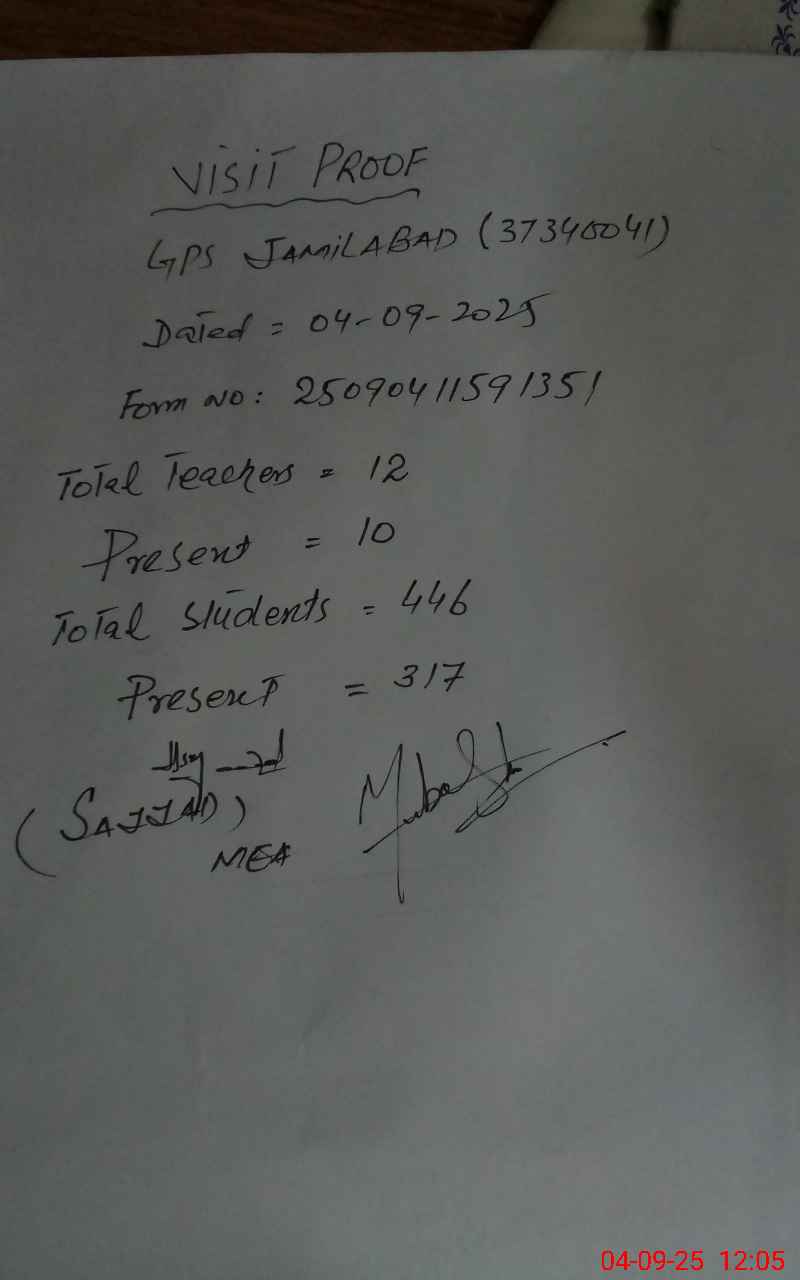 VISIT PROOF
GPS JAMILABAD (37340041)
Dated = 04-09-2025
Form NO: 25090411591351
Total Teachers = 12
Present = 10
Total Students = 446
Present = 317
(SAJJAD)
MEA
04-09-25 12:05